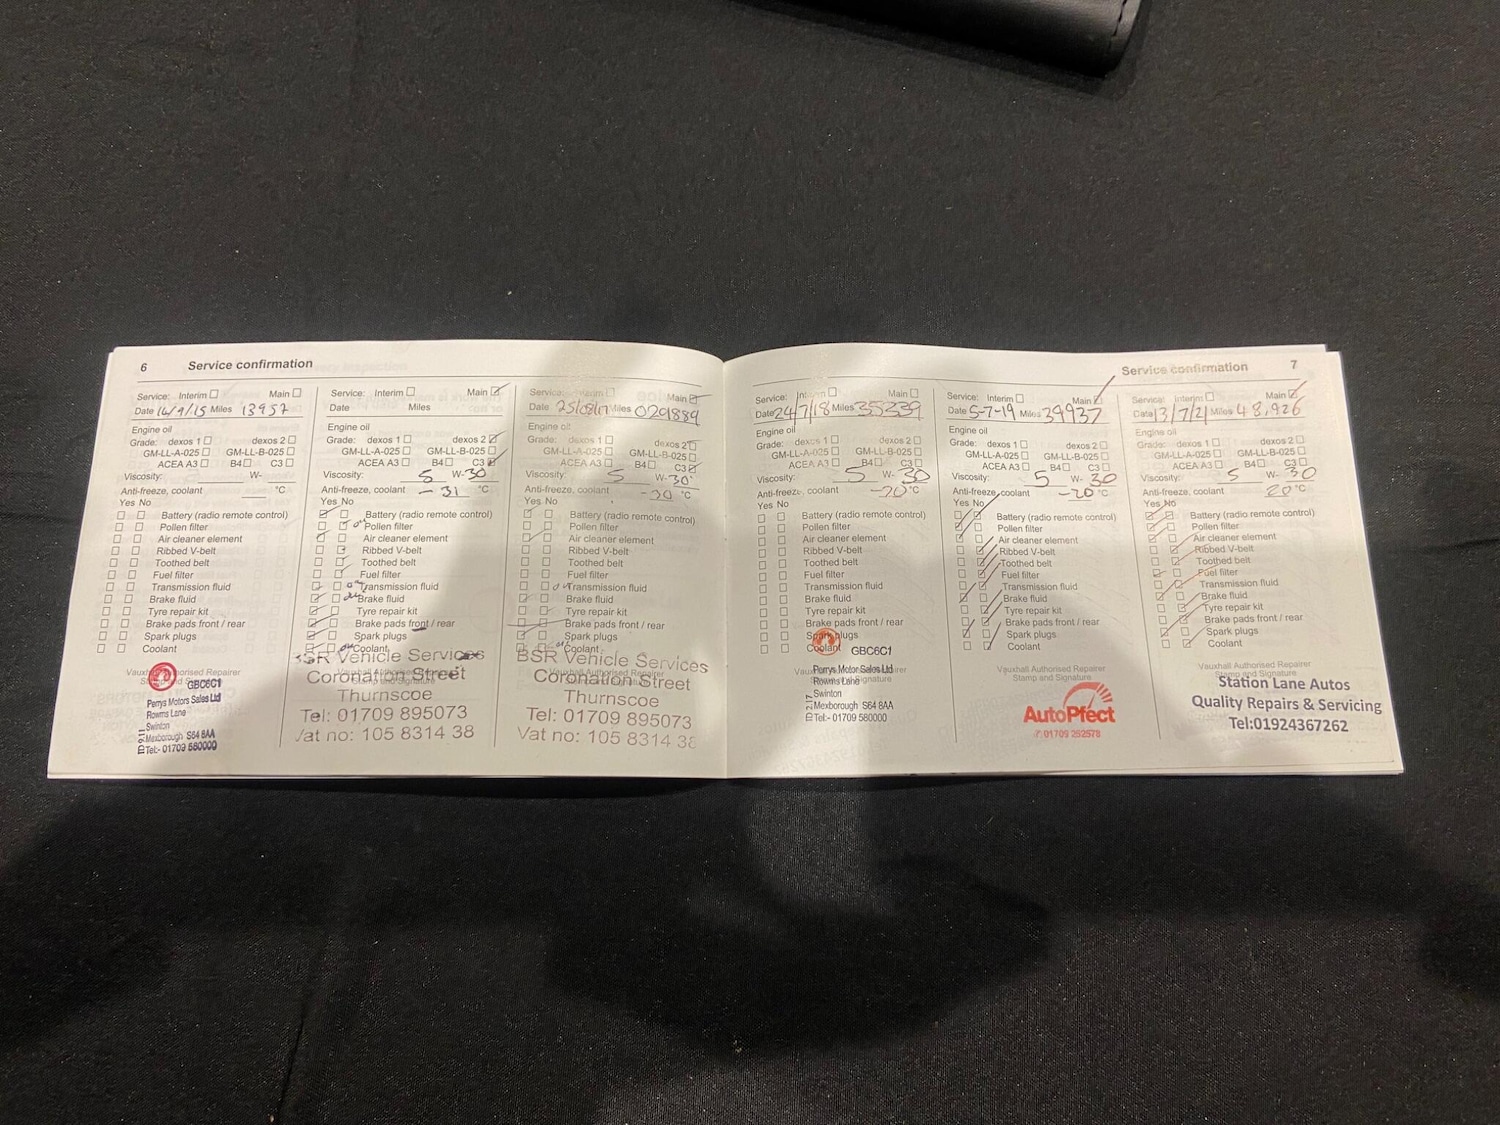 6 Service confirmation
Service: Interim Main
Date 14/9/15 Miles 13957
Engine oil
Grade: dexos 1 dexos 2
GM-LL-A-025 GM-LL-B-025
ACEA A3 B4 C3
Viscosity: W-
Anti-freeze, coolant °C
Yes No
Battery (radio remote control)
Pollen filter
Air cleaner element
Ribbed V-belt
Toothed belt
Fuel filter
Transmission fluid
Brake fluid
Tyre repair kit
Brake pads front / rear
Spark plugs
Coolant
Vauxhall Authorised Repairer
Stamp and Signature
GBC6C1
Perrys Motors Sales Ltd
Rowms Lane
Swinton
Mexborough S64 8AA
Tel:- 01709 580000
Service: Interim Main
Date Miles
Engine oil
Grade: dexos 1 dexos 2
GM-LL-A-025 GM-LL-B-025
ACEA A3 B4 C3
Viscosity: 5 W-30
Anti-freeze, coolant -31 °C
Yes No
Battery (radio remote control)
Pollen filter
Air cleaner element
Ribbed V-belt
Toothed belt
Fuel filter
Transmission fluid
Brake fluid
Tyre repair kit
Brake pads front / rear
Spark plugs
Coolant
BSR Vehicle Services
Coronation Street
Thurnscoe
Tel: 01709 895073
Vat no: 105 8314 38
Service: Interim Main
Date 25/08/17 Miles 029889
Engine oil
Grade: dexos 1 dexos 2
GM-LL-A-025 GM-LL-B-025
ACEA A3 B4 C3
Viscosity: 5 W-30
Anti-freeze, coolant -30 °C
Yes No
Battery (radio remote control)
Pollen filter
Air cleaner element
Ribbed V-belt
Toothed belt
Fuel filter
Transmission fluid
Brake fluid
Tyre repair kit
Brake pads front / rear
Spark plugs
Coolant
BSR Vehicle Services
Coronation Street
Thurnscoe
Tel: 01709 895073
Vat no: 105 8314 38
Service confirmation 7
Service: Interim Main
Date 24/7/18 Miles 35339
Engine oil
Grade: dexos 1 dexos 2
GM-LL-A-025 GM-LL-B-025
ACEA A3 B4 C3
Viscosity: 5 W-30
Anti-freeze, coolant -20 °C
Yes No
Battery (radio remote control)
Pollen filter
Air cleaner element
Ribbed V-belt
Toothed belt
Fuel filter
Transmission fluid
Brake fluid
Tyre repair kit
Brake pads front / rear
Spark plugs
Coolant
GBC6C1
Perrys Motor Sales Ltd
Rowms Lane
Swinton
Mexborough S64 8AA
Tel:- 01709 580000
Service: Interim Main
Date 5-7-19 Miles 39937
Engine oil
Grade: dexos 1 dexos 2
GM-LL-A-025 GM-LL-B-025
ACEA A3 B4 C3
Viscosity: 5 W-30
Anti-freeze, coolant -20 °C
Yes No
Battery (radio remote control)
Pollen filter
Air cleaner element
Ribbed V-belt
Toothed belt
Fuel filter
Transmission fluid
Brake fluid
Tyre repair kit
Brake pads front / rear
Spark plugs
Coolant
Vauxhall Authorised Repairer
Stamp and Signature
AutoPfect
01709 292578
Service: Interim Main
Date 13/7/21 Miles 48,926
Engine oil
Grade: dexos 1 dexos 2
GM-LL-A-025 GM-LL-B-025
ACEA A3 B4 C3
Viscosity: 5 W-30
Anti-freeze, coolant 20 °C
Yes No
Battery (radio remote control)
Pollen filter
Air cleaner element
Ribbed V-belt
Toothed belt
Fuel filter
Transmission fluid
Brake fluid
Tyre repair kit
Brake pads front / rear
Spark plugs
Coolant
Vauxhall Authorised Repairer
Stamp and Signature
Station Lane Autos
Quality Repairs & Servicing
Tel:01924367262